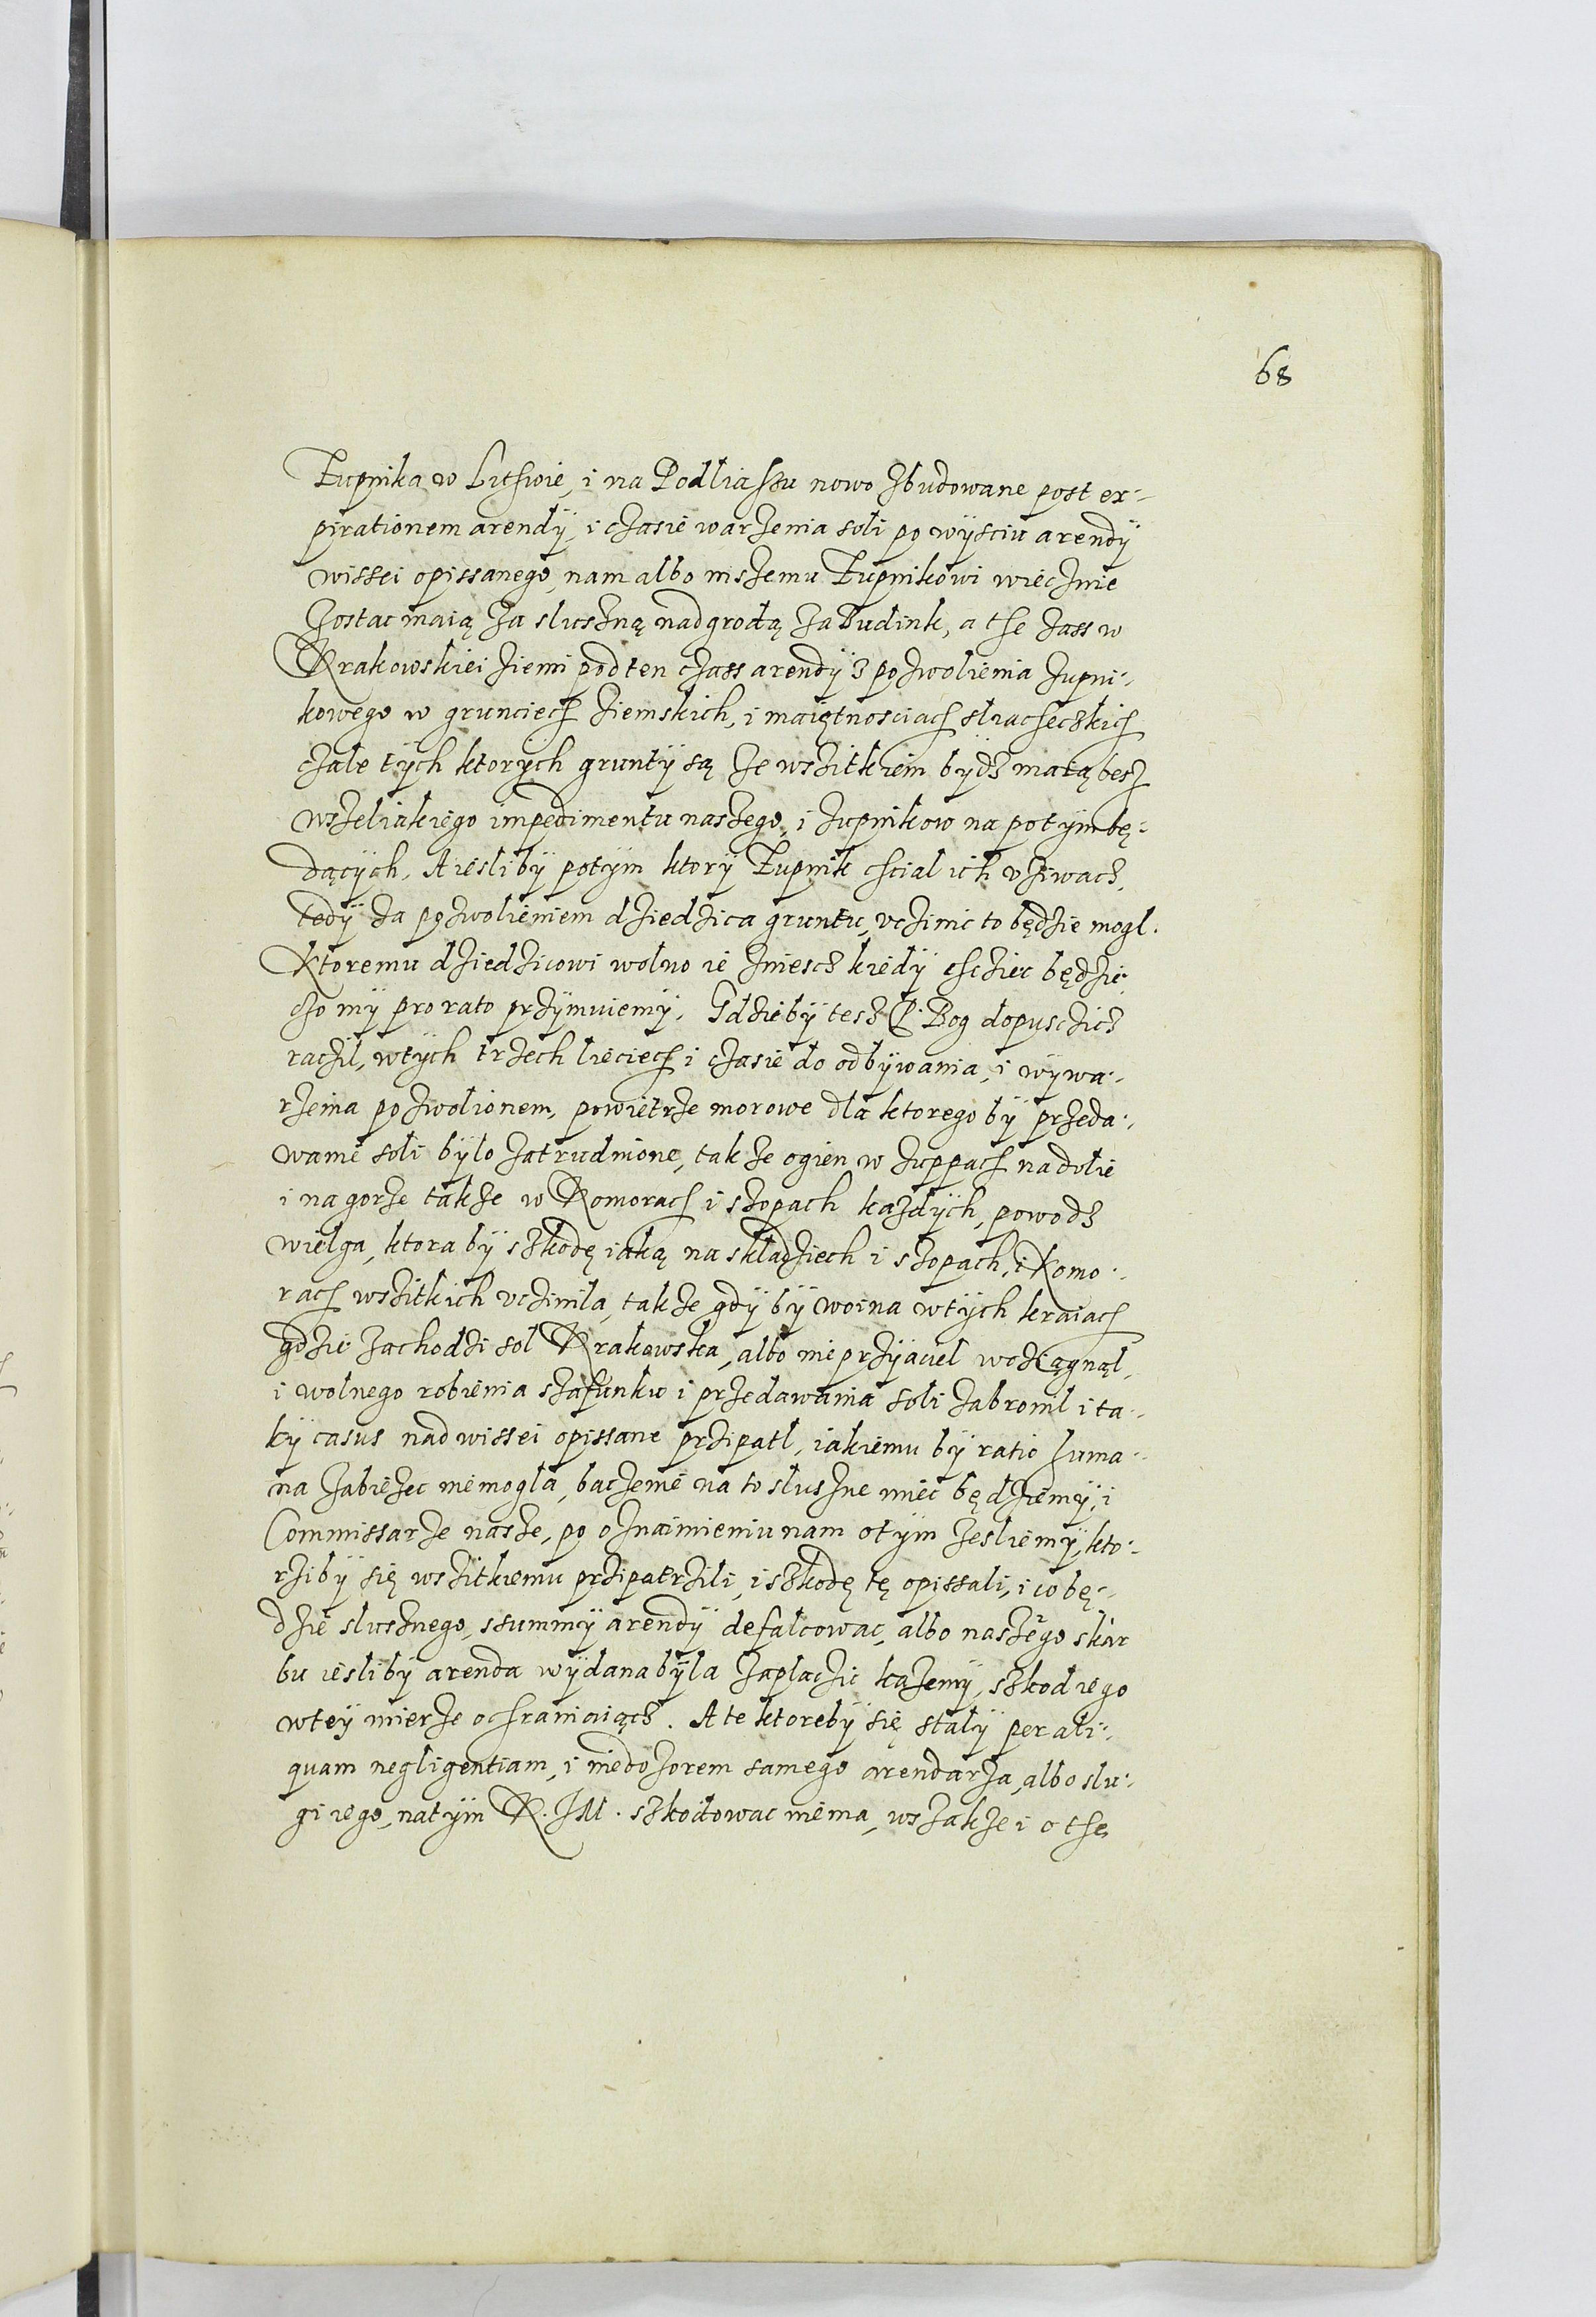 68
Zupnika w Lithwie, i na Podliaszu nowo zbudowane post ex-
pirationem arendÿ, i czasie warzenia soli po wÿsciu arendÿ
wissei opissanego, nam albo niszemu Zupnikowi wiecznie
zostac maią za sluszną nadgrodą za Budink, a the zass w
Krakowskiei ziemi pod ten czass arendÿ z pozwolienia zupni-
kowego w grunciech ziemskich, i maiętnosciach sliacheczkich
czale tÿch ktorÿch gruntÿ są ze wszitkiem bÿdz maią besz
wszeliakiego impedimentu naszego, i zupnikow na potÿm bę-
dącÿch, A iesli bÿ potÿm ktorÿ Zupnik chcial ich vziwacz,
tedÿ za pozwolieniem dziedzica gruntu, vczinic to będzie mogl.
Ktoremu dziedzicowi wolno ie zniescz kiedÿ chcziec będzie,
czo mÿ pro rato przÿmuiemÿ. Gdzie bÿ tesz P. Bog dopusczicz
raczil, wtÿch trzech lieciech i czasie do odbÿwania, i wÿwa-
rzenia pozwolionem, powietrze morowe dla ktorego bÿ przeda-
wanie soli bÿlo zatrudnione, takze ogien w zuppach na dolie
i na gorze takze w Komorach i szopach kazdÿch, powodz
wielga, ktora bÿ szkodę iaką na skladziech i szopach, i Komo-
rach wszitkich vczinila, takze gdÿ bÿ woina wtÿch kraiach
gdzie zachodzi sol Krakowska, albo nieprzÿiaciel wcziągnąl,
i wolnego robienia szafunku i przedawania soli zabronil i ta-
kÿ casus nadwissei opissane przipatl, iakiemu bÿ ratio huma-
na zabiezec niemogla, baczenie na to sluszne miec będziemÿ, i
Commissarze nasze, po oznaimieniu nam otÿm zesliemÿ, kto-
rzi bÿ się wszitkiemu przipatrzili, i szkodę tę opissali, i co bę-
dzie slusznego, ssummÿ arendÿ defalcowac, albo naszego skar
bu iesli bÿ arenda wÿdana bÿla zaplaczic kazemÿ, szkod iego
wteÿ mierze ochraniaiącz. A te ktoreby się stalÿ per ali-
quam negligentiam, i niedozorem samego arendarza, albo slu-
gi iego, natÿm K. JM. szkodowac niema, wszakze i o the